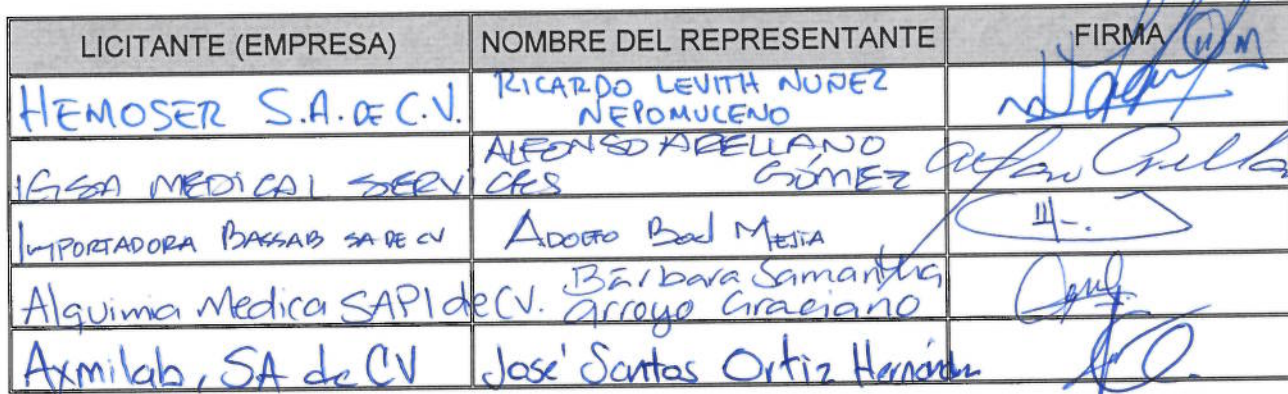 LICITANTE (EMPRESA) NOMBRE DEL REPRESENTANTE FIRMA
HEMOSER S.A. DE C.V. RICARDO LEVITH NUÑEZ
NEPOMUCENO
IGSA MEDICAL SERVICES ALFONSO ARELLANO
GÓMEZ
IMPORTADORA BASSAB SA DE CV ADOLFO MEJIA
Alquimia Medica SAPI de CV. Bárbara Samantha
Arroyo Graciano
Axmilab, SA de CV José Santos Ortiz Hernández